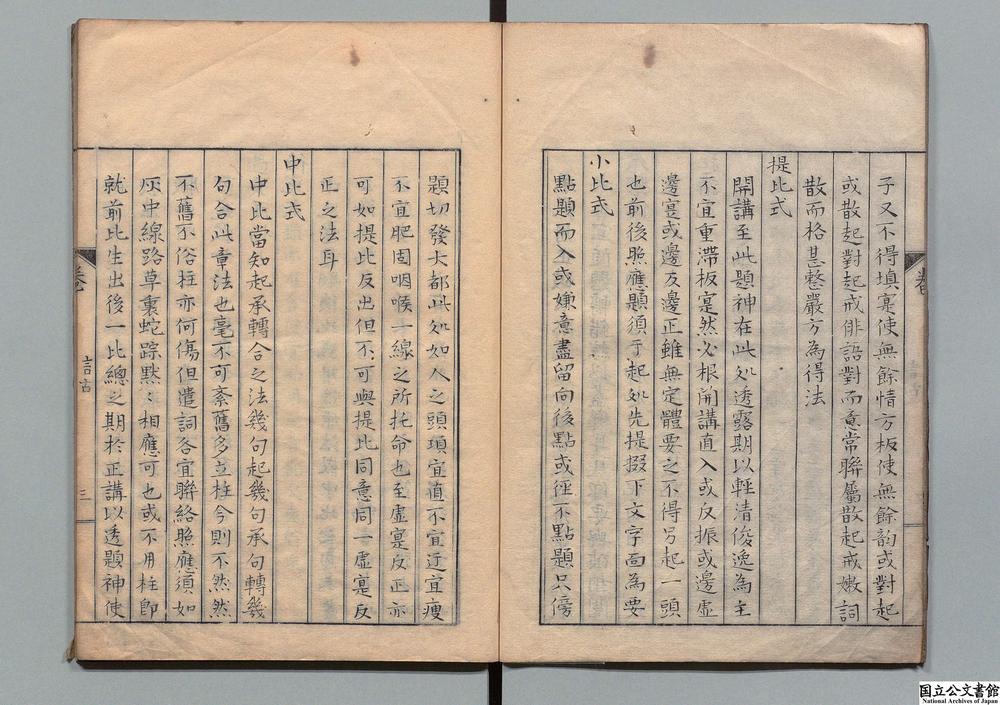 子又不得填寔使無餘情方板使無餘韵或對起
或散起對起戒俳語對而意常聯屬散起戒嫩詞
散而格甚整嚴方為得法
提比式
開講至此題神在此処透露期以輕清俊逸為主
不宜重滯板寔然必根開講直入或反振或邊虛
邊寔或邊反邊正雖無定體要之不得另起一頭
也前後照應題須于起処先提掇下文字面為要
小比式
點題而入或嫌意盡留向後點或徑不點題只傍
題切發大都此処如人之頭項宜值不宜迂宜瘦
不宜肥固咽喉一線之所托命也至虛寔反正亦
可如提比反出但不可與提比同意同一虛寔反
正之法耳
中比式
中比當知起承轉合之法幾句起幾句承句轉幾
句合此章法也毫不可紊舊多立柱今則不然然
不舊不俗柱亦何傷但遣詞各宜聯絡照應須如
灰中線路草裏蛇踪黙〻相應可也或不用柱即
就前比生出後一比總之期於正講以透題神使
三
国立公文書館
National Archives of Japan